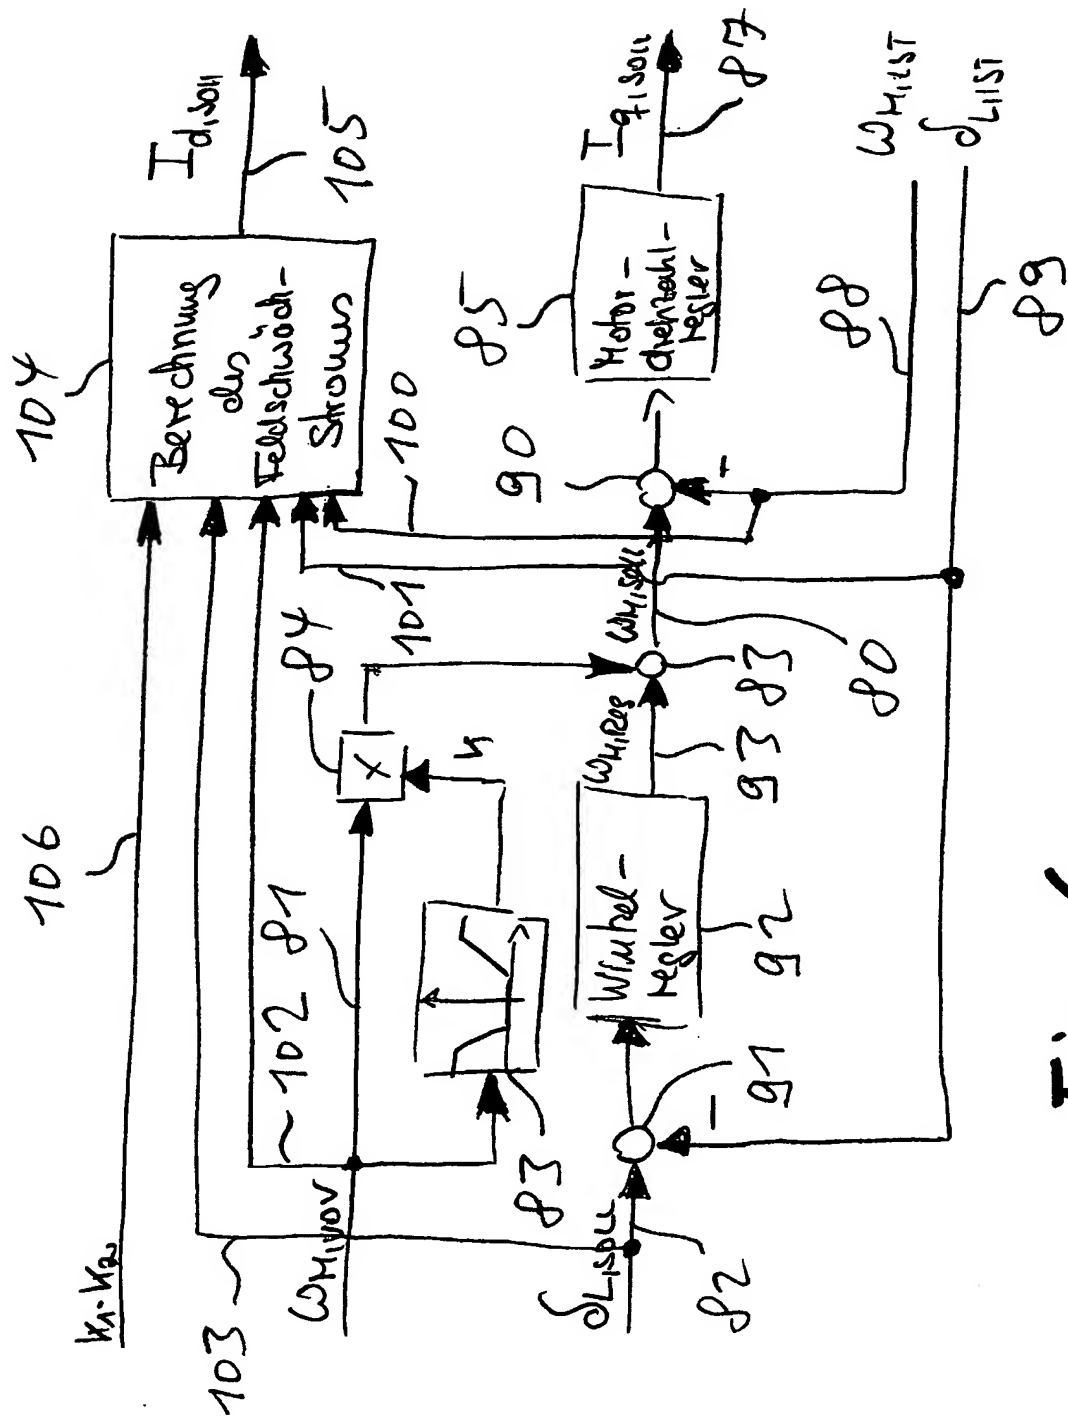 104
Berechnung
des
Feldschwäch-
Stroms
I d,soll
105
106
k1·k2
103
102
81
ω M,VOR
84
X
K
83
101
100
δ L,SOLL
82
91
–
Winkel-
regler
92
ω M,Reg
93
83
ω M,soll
80
90
–
85
Motor-
drehzahl-
regler
I q,soll
87
88
ω M,IST
δ L,IST
89